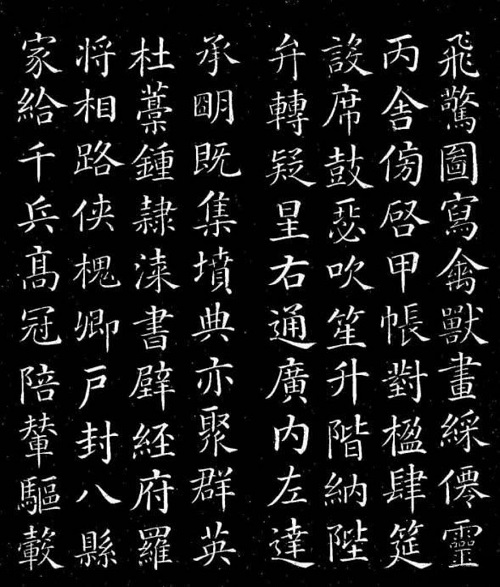 飛驚圖寫禽獸畫綵僊靈
丙舎傍啓甲帳對楹肆筵
設席鼓瑟吹笙升階納陛
弁轉疑星右通廣内左達
承朙既集墳典亦聚群英
杜藁鍾隷漆書壁經府羅
将相路俠槐卿戸封八縣
家給千兵髙冠陪輦驅轂